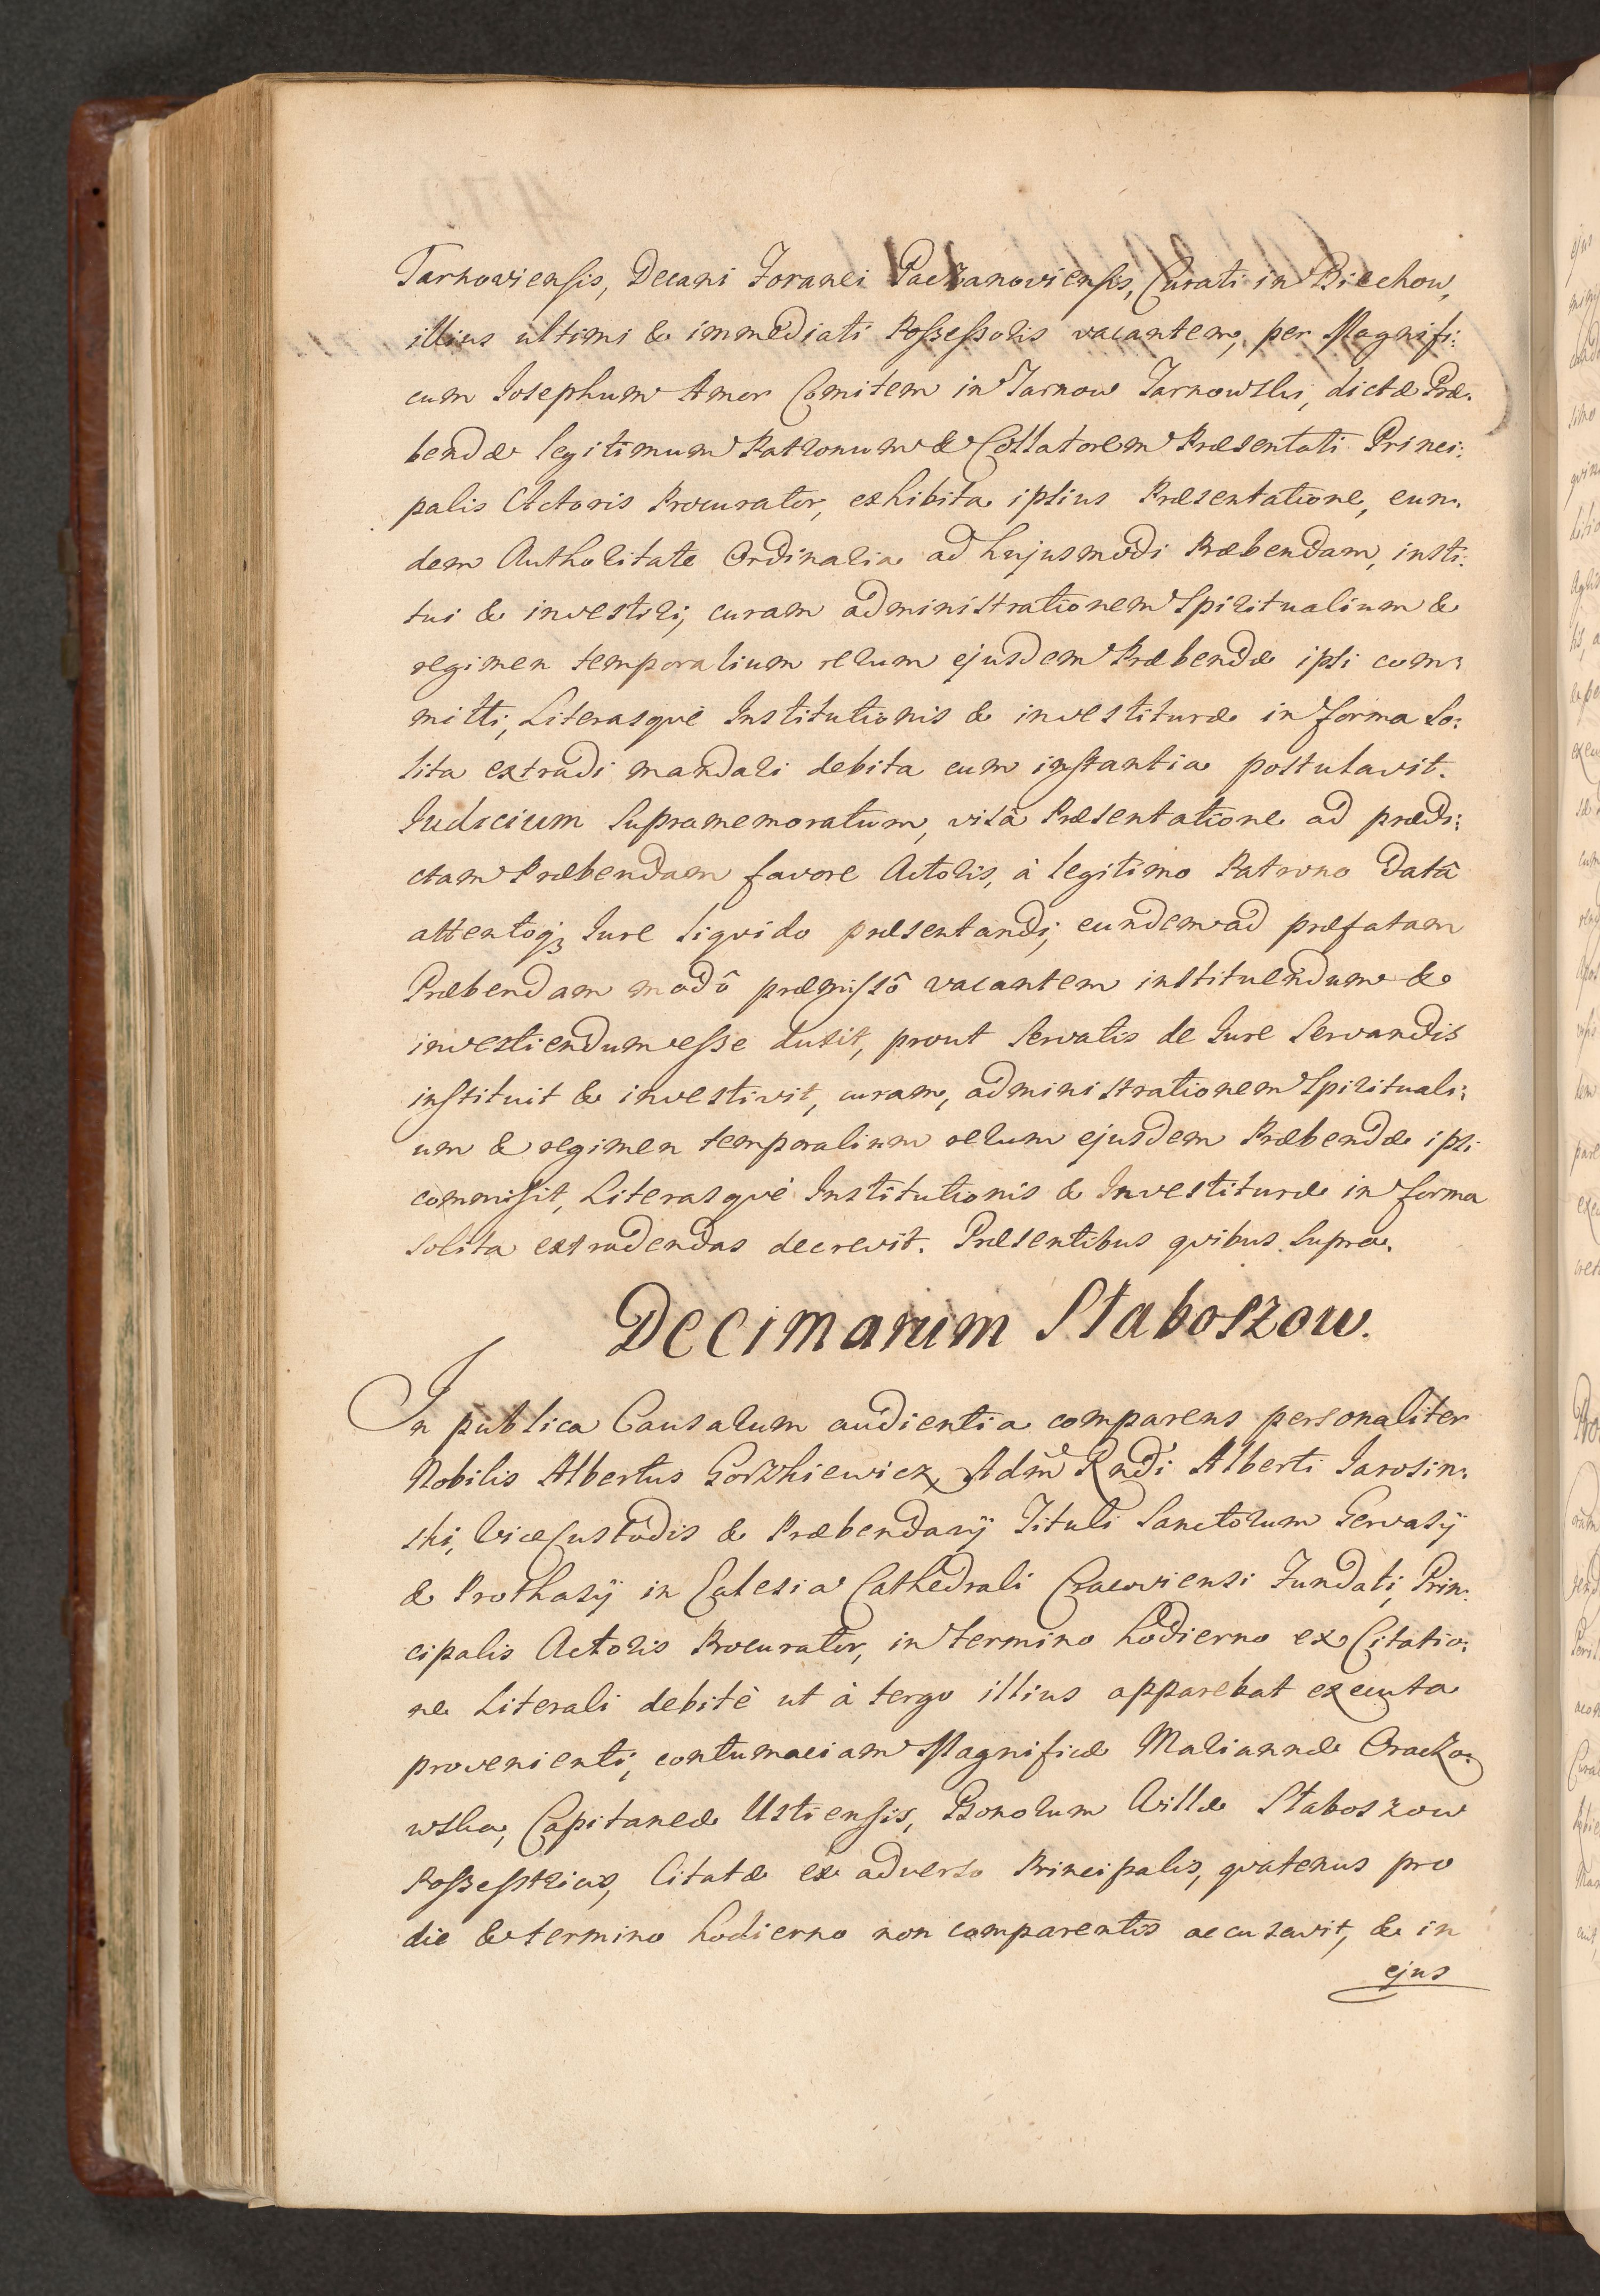 Tarnoviensis, Decani Foranei Paczanoviensis, Curati in Biechow,
illius ultimi & immediati Possessoris vacantem, per Magnifi:
cum Josephum Amor Comitem in Tarnow Tarnowski, dictæ Præ:
bendæ legitimum Patronum & Collatorem Præsentati Princi:
palis Actoris Procurator, exhibita ipsius Præsentatione, eun:
dem Authoritate Ordinaria ad hujusmodi Præbendam, insti:
tui & investiri, curam administrationem Spiritualium &
regimen temporalium rerum ejusdem Præbendæ ipsi com:
mitti, Literasquè Institutionis & investituræ in forma So:
lita extradi mandari debita cum instantia postulavit.
Judicium Supramemoratum, visâ Præsentatione ad prædi:
ctam Præbendam favore Actoris, à legitimo Patrono datâ
attentoq3 Jure liquido præsentandi, eundem ad præfatam
Præbendam modô præmissô vacantem instituendum &
investiendum esse duxit, prout Servatis de Jure Servandis
instituit & investivit, curam, administrationem Spirituali:
um & regimen temporalium rerum ejusdem Præbendæ ipsi
commisit, Literasquè Institutionis & Investituræ in forma
solita extradendas decrevit. Præsentibus quibus Supra.
Decimarum Staboszow.
In publica Causarum audientia comparens personaliter
Nobilis Albertus Gorzkiewicz Adm Rndi Alberti Jarosin:
ski, ViceCustodis & Præbendarÿ Tituli Sanctorum Gervasÿ
& Prothasÿ in Eclesia Cathedrali Cracoviensi Fundati, Prin:
cipalis Actoris Procurator, in termino hodierno ex Citatio:
ne Literali debitè ut à tergo illius apparebat executa
provenienti, contumaciam Magnificæ Mariannæ Oraczo:
wska, Capitaneæ Ustiensis, Bonorum Villæ Staboszow
Possestricis, Citatæ ex adverso Principalis, quatenus pro
die & termino hodierno non comparentis accusavit, & in
ejus